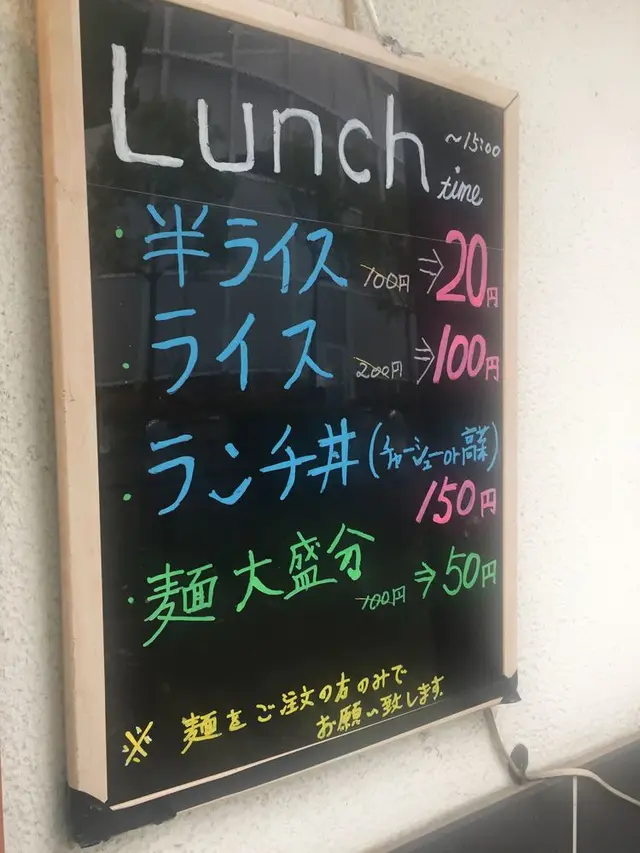 Lunch time ~15:00
・半ライス 100円 ⇒ 20円
・ライス 200円 ⇒ 100円
・ランチ丼 (チャーシューor高菜)
150円
・麺大盛分 100円 ⇒ 50円
※ 麺をご注文の方のみで
お願い致します